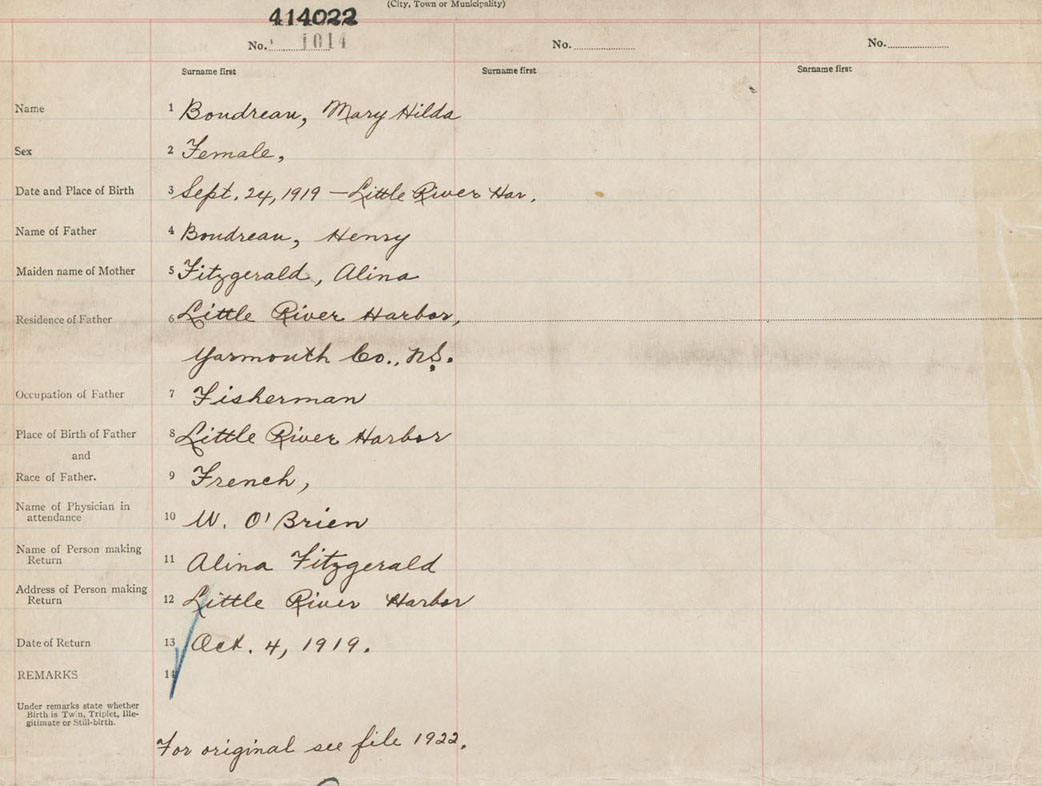 (City, Town or Municipality)
414022
No. 1014
No.
No.
Surname first
Surname first
Surname first
Name 1 Boudreau, Mary Hilda
Sex 2 Female,
Date and Place of Birth 3 Sept. 24, 1919 – Little River Har.
Name of Father 4 Boudreau, Henry
Maiden name of Mother 5 Fitzgerald, Alina
Residence of Father 6 Little River Harbor,
Yarmouth Co., N.S.
Occupation of Father 7 Fisherman
Place of Birth of Father 8 Little River Harbor
and
Race of Father. 9 French,
Name of Physician in
attendance 10 W. O'Brien
Name of Person making
Return 11 Alina Fitzgerald
Address of Person making
Return 12 Little River Harbor
Date of Return 13 Oct. 4, 1919.
REMARKS 14
Under remarks state whether
Birth is Twin, Triplet, Ille-
gitimate or Still-birth.
For original see file 1922.